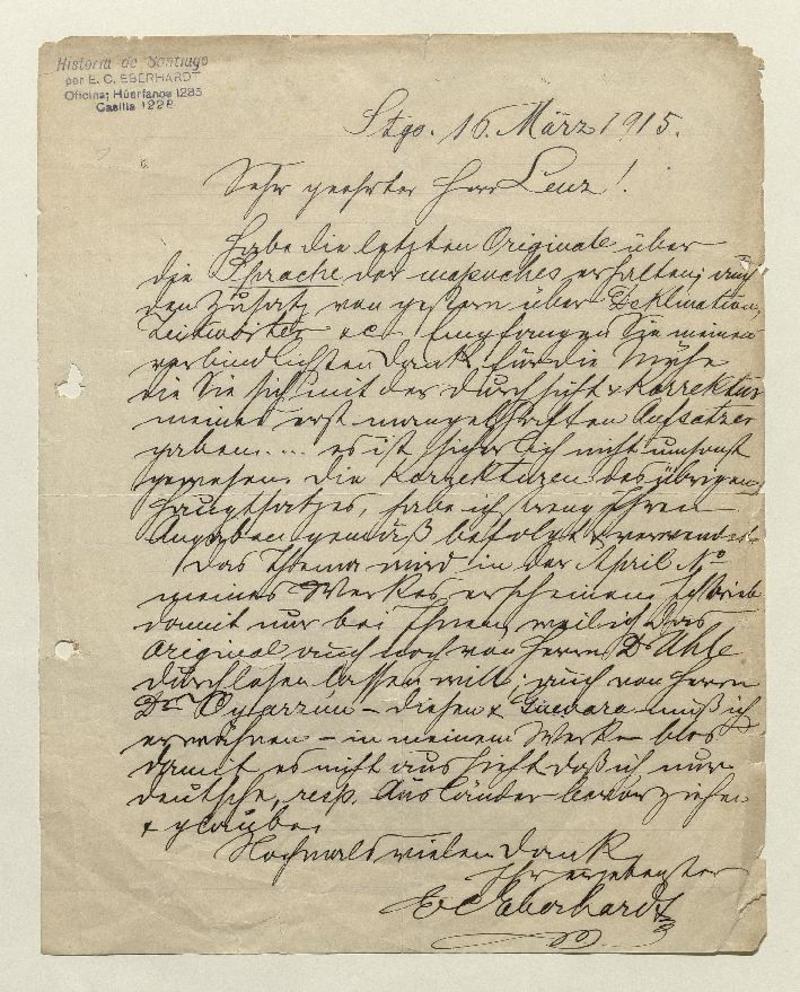 Historia de Santiago
por E. C. EBERHARDT
Oficina; Húerfanos 1283
Casilla 1228
Stgo. 16. März 1915.
Sehr geehrter Herr Lenz!
Habe die letzten Originale über
die Sprache der mapuches erhalten; auch
den Zusatz von gestern über Deklination,
Zeitwörter &c. Empfangen Sie meinen
verbindlichsten Dank für die Mühe
die Sie sich mit der Durchsicht & Korrektur
meines erst mangelhaften Aufsatzes
gaben.... es ist sicherlich nicht umsonst
gewesen. Die Korrekturen des übrigen
Hauptsatzes, habe ich streng Ihren
Angaben gemäß befolgt & verwendet.
Das Thema wird in der April No
meines Werkes erscheinen.
damit nur bei Ihnen, weil ich das
Original auch noch von Herrn Dr Uhle
durchlesen lassen will; auch von Herrn
Dr Oyarzún – diesen & Guevara muß ich
erwähnen – in meinem Werke blos
damit es nicht aussieht daß ich nur
deutsche, resp. Ausländer bevorziehe
& glaube.
Nochmals vielen Dank
Ihr ergebenster
E C Eberhardt